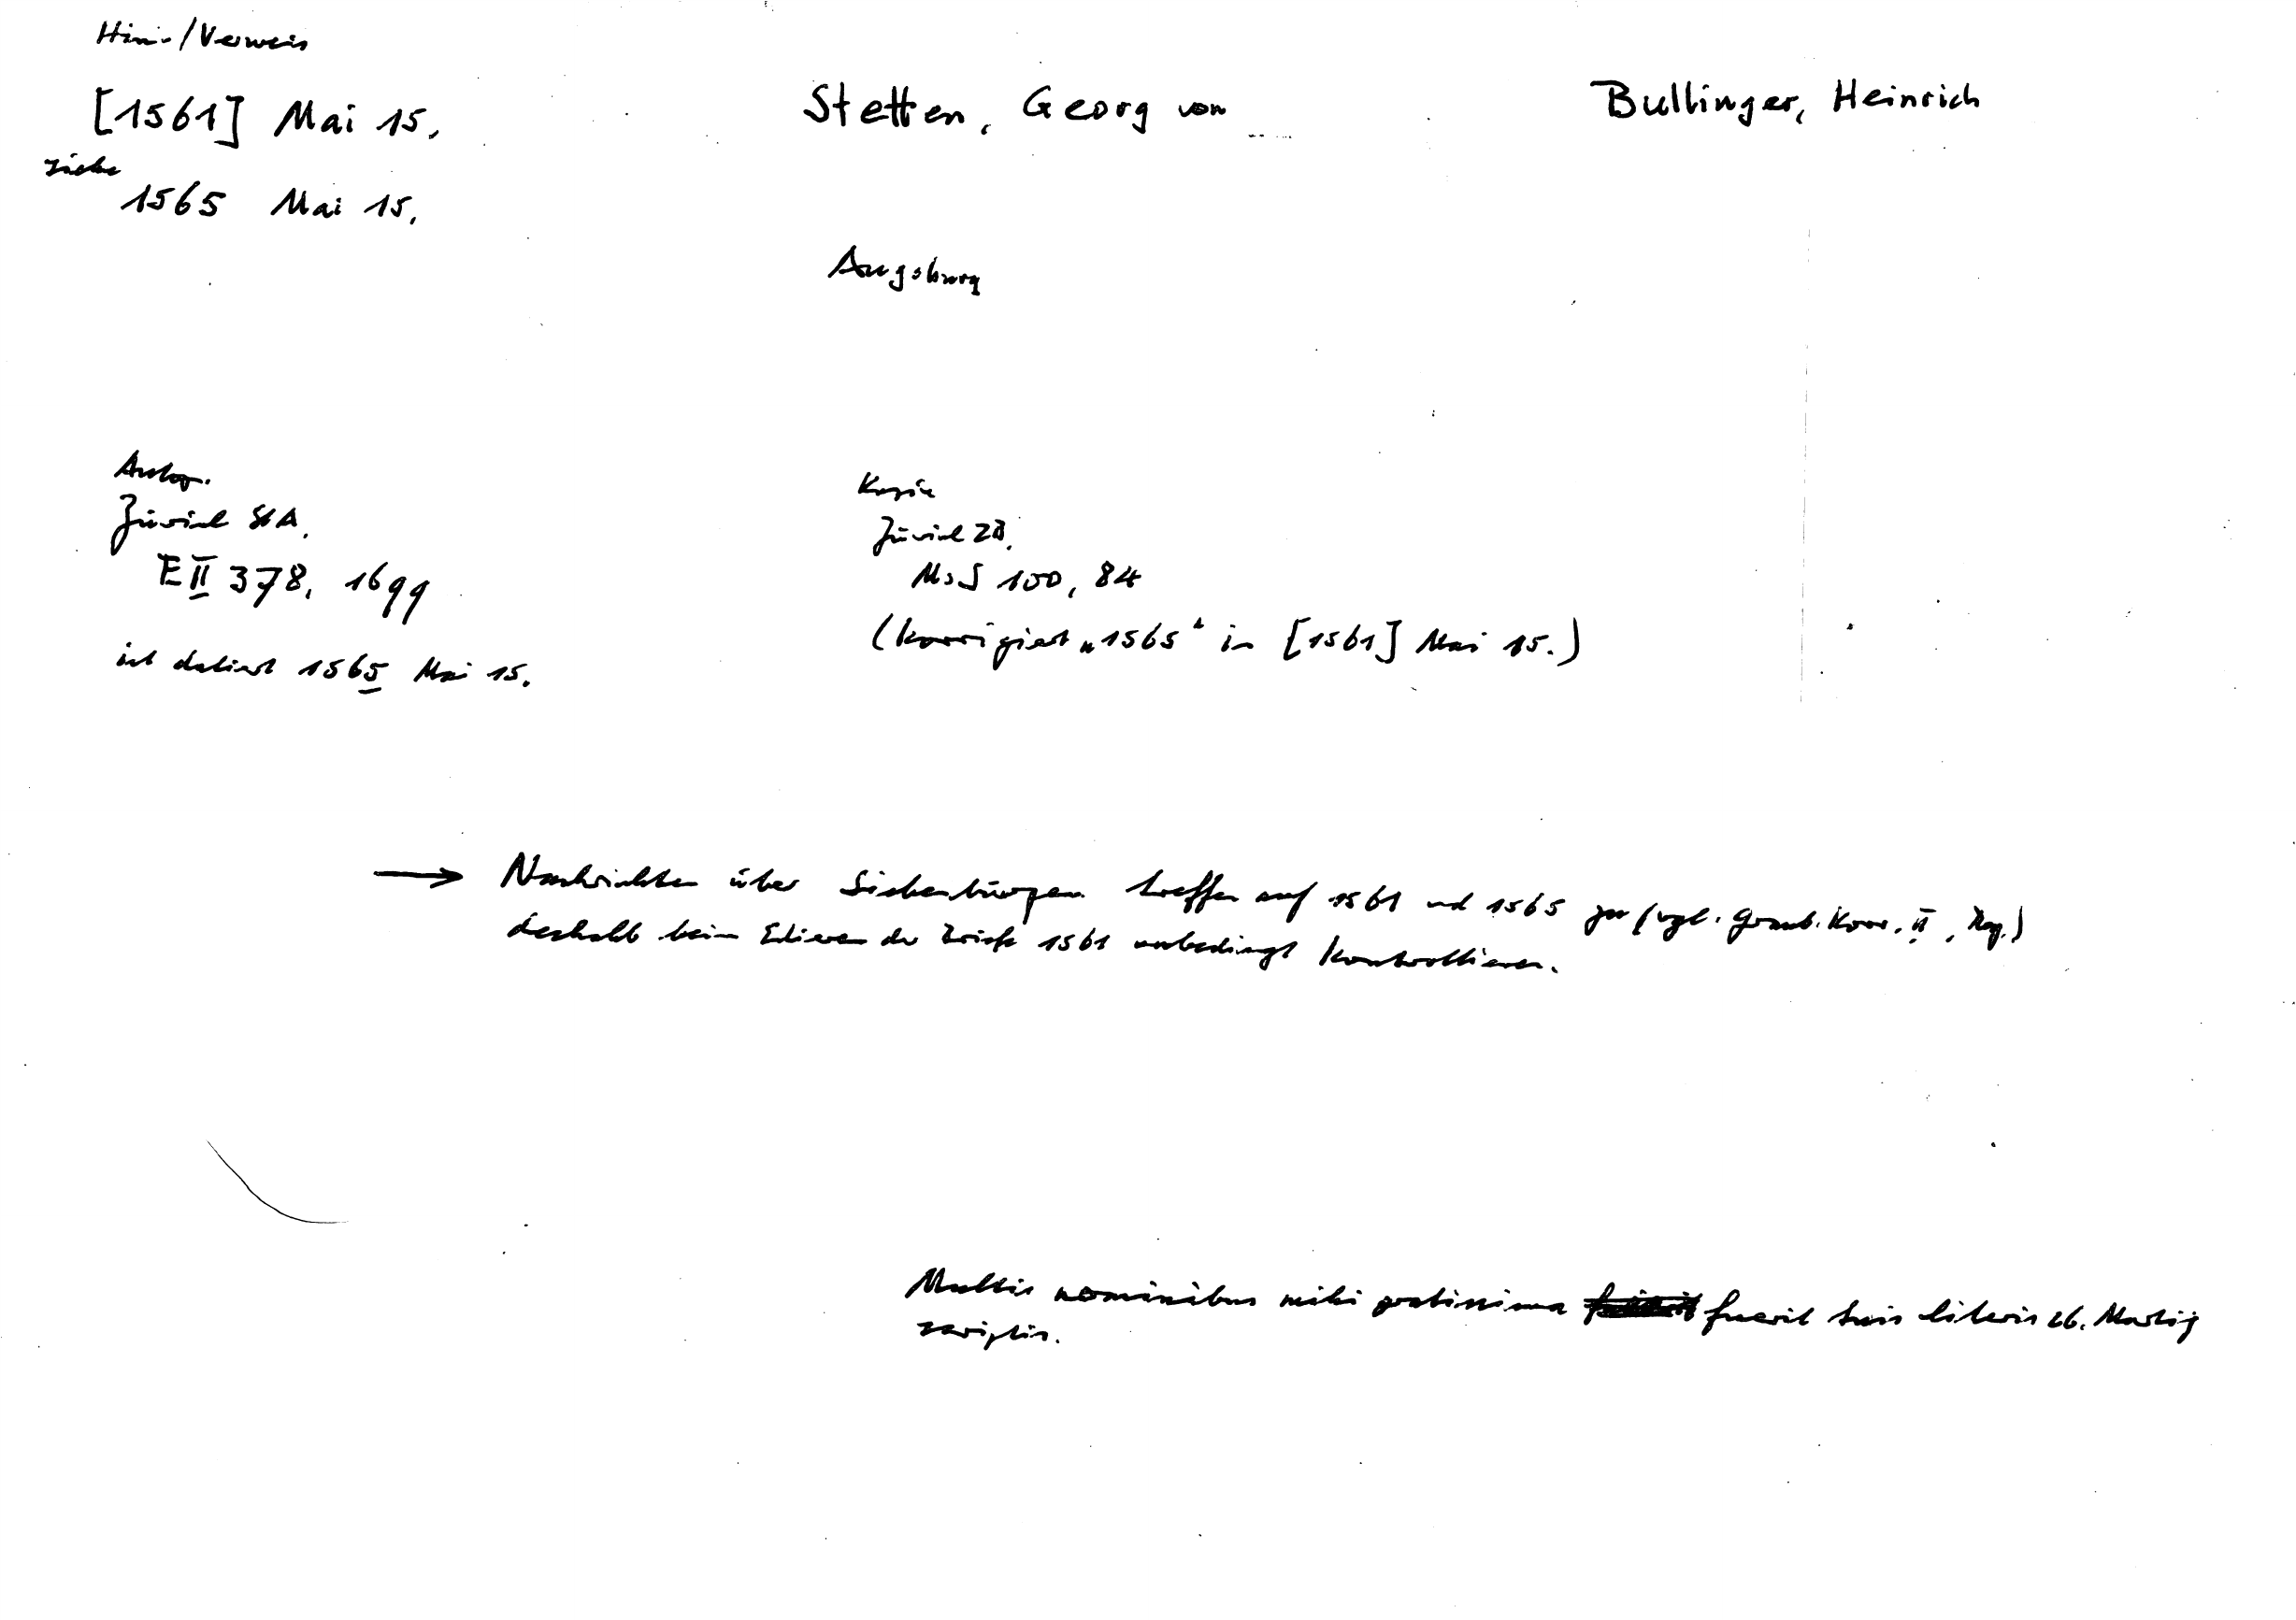 Hin-/Verweis
[1561] Mai 15.
Stetten, Georg von
Bullinger, Heinrich
siehe
1565 Mai 15.
Augsburg
Autogr.
Zürich StA.
E II 378, 1699
ist datiert 1565 Mai 15.
Kopie
Zürich ZB.
Ms S 100, 84
(korrigiert „1565“ in [1561] Mai 15.)
→ Nachrichten über Siebenbürgen treffen auf 1561 und 1565 zu (vgl. Graub. Korr. II, Reg.)
deshalb beim Edieren der Briefe 1561 unbedingt kontrollieren.
Multis nominibus mihi gratissima fuerit tuis literis 26. Martij
scriptis.